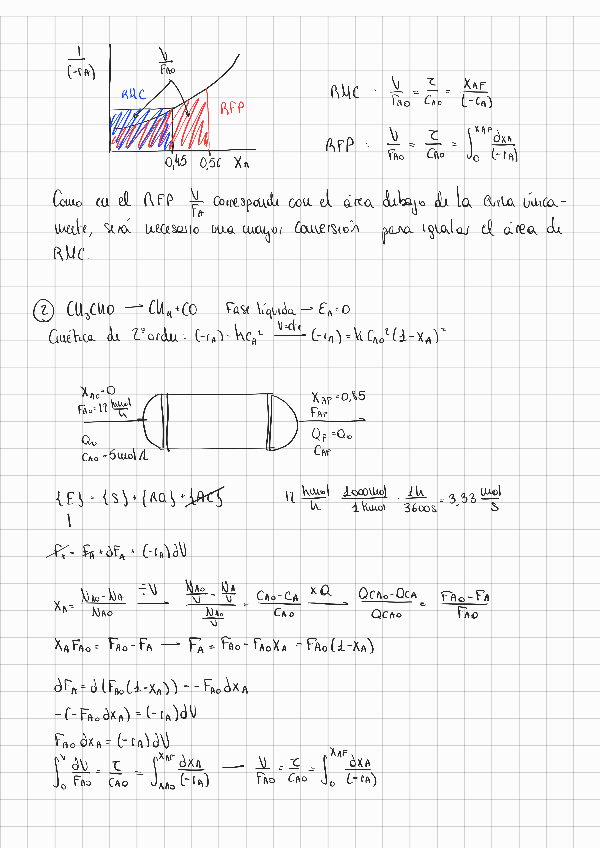 1/(-rA)
V/FAO
RMC
RFP
0,45 0,56 XA
RMC : V/FAO = τ/CAO = XAF/(-rA)
RFP : V/FAO = τ/CAO = ∫₀^XAF dXA/(-rA)
Como en el RFP V/FA corresponde con el área debajo de la curva única-
mente, será necesario una mayor conversión para igualar el área de
RMC.
② CH₃CHO → CH₄ + CO Fase líquida → εA = 0
Cinética de 2º orden: (-rA) = kCA² —V=cte→ (-rA) = kCAO²(1-XA)²
XAO = 0
FAO = 12 kmol/h
QO
CAO = 5 mol/L
XAF = 0,85
FAF
QF = QO
CAF
{E} = {S} + {RQ} + {AC}
12 kmol/h · 1000mol/1kmol · 1h/3600s = 3,33 mol/s
FA = FA + dFA + (-rA)dV
XA = (NAO-NA)/NAO —÷V→ (NAO/V - NA/V)/(NAO/V) = (CAO-CA)/CAO —×Q→ (QCAO-QCA)/QCAO = (FAO-FA)/FAO
XAFAO = FAO - FA → FA = FAO - FAOXA = FAO(1-XA)
dFA = d(FAO(1-XA)) = -FAO dXA
-(-FAO dXA) = (-rA)dV
FAO dXA = (-rA)dV
∫₀^V dV/FAO = τ/CAO = ∫_XAO^XAF dXA/(-rA) → V/FAO = τ/CAO = ∫₀^XAF dXA/(-rA)